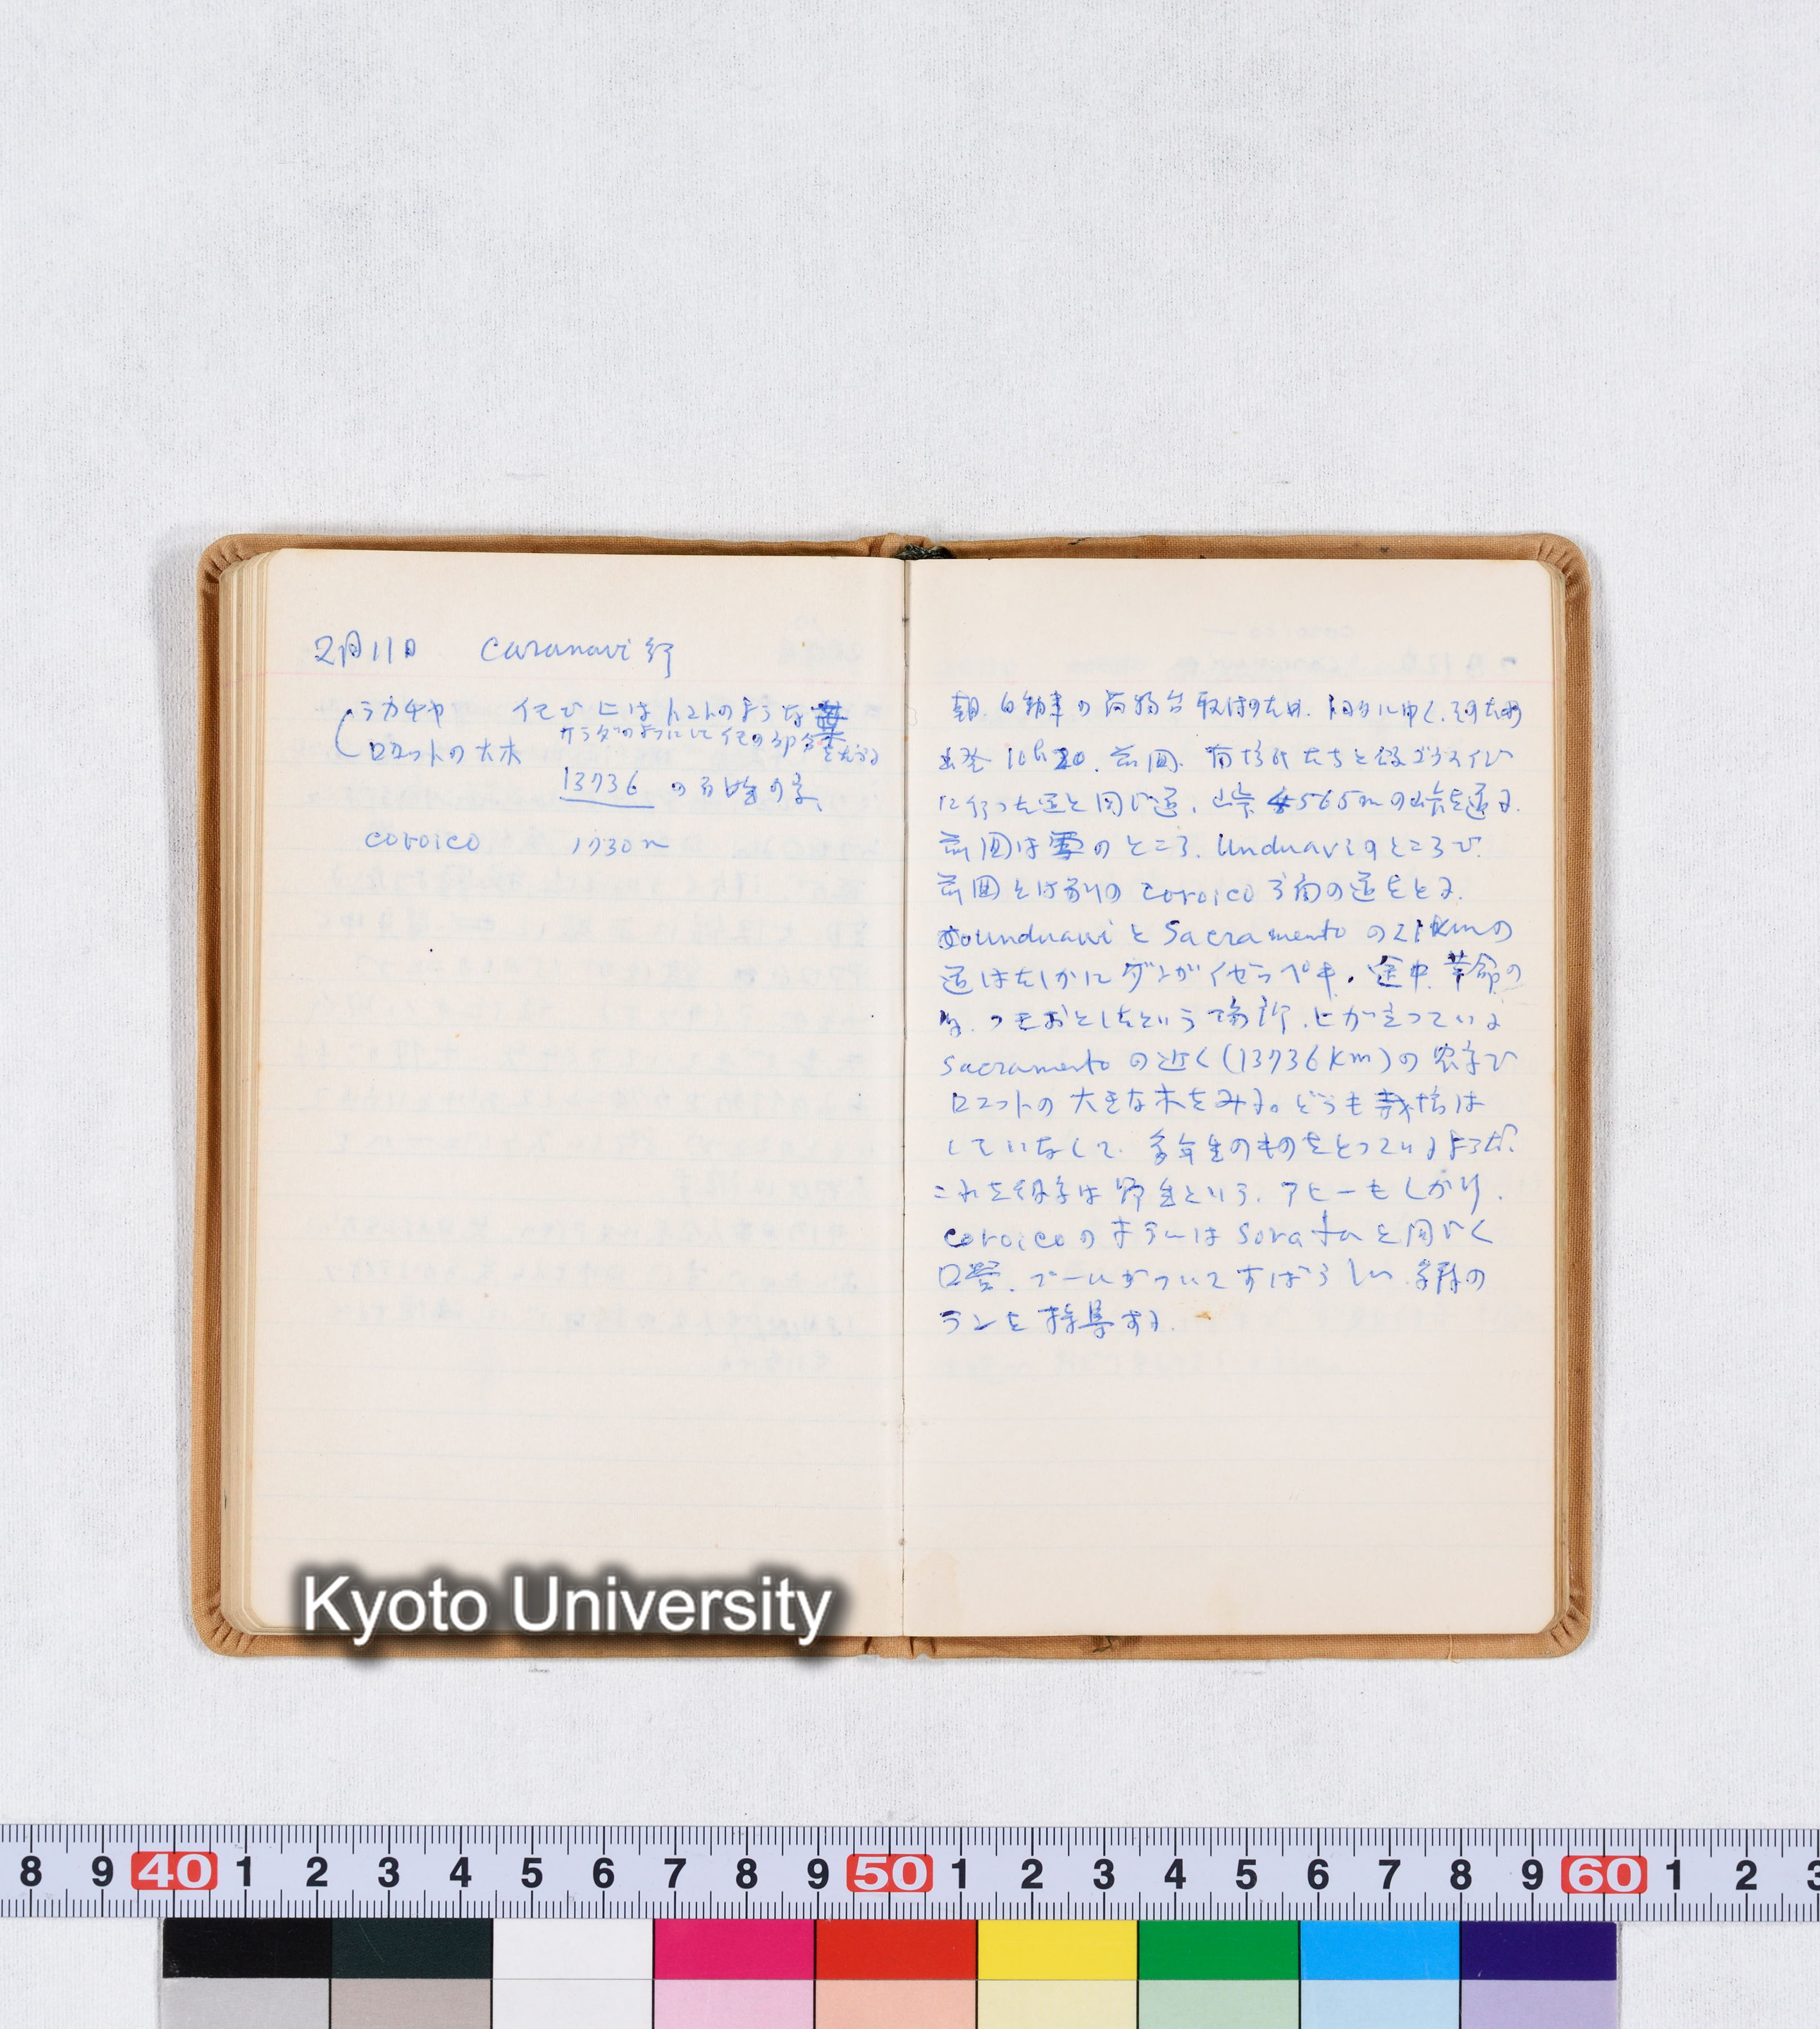 2月11日 Caranavi行
ラカチャ イモで上はトマトのような葉
サラダのようにしてイモの部分をたべる
ロコットの大木
13736 の百姓の家
coroico 1730m
朝.自動車の荷物台取付のため. に ゆく.そのため
出発 10h20. 前回. たちと
に行った道と同じ道. 峠 4565mの峠を通る.
前回は雪のところ. Unduaviのところで
前回とは別の coroico 方面の道をとる.
Unduavi と Sacramento の21kmの
道はたしかにダンガイゼッペキ. 途中 革命の
時. つきおとしたという場所. ヒが立っている
Sacramento の近く(13736km)の農家で
ロコットの 大きな木をみる。どうも栽培は
していなくて. 多年生のものをとっているようだ.
これを 野生という. アヒーもしかり.
coroicoのホテルは Sorata と同じく
営. プールがついてすばらしい.
ランを採集する.
Kyoto University
8 9 40 1 2 3 4 5 6 7 8 9 50 1 2 3 4 5 6 7 8 9 60 1 2 3